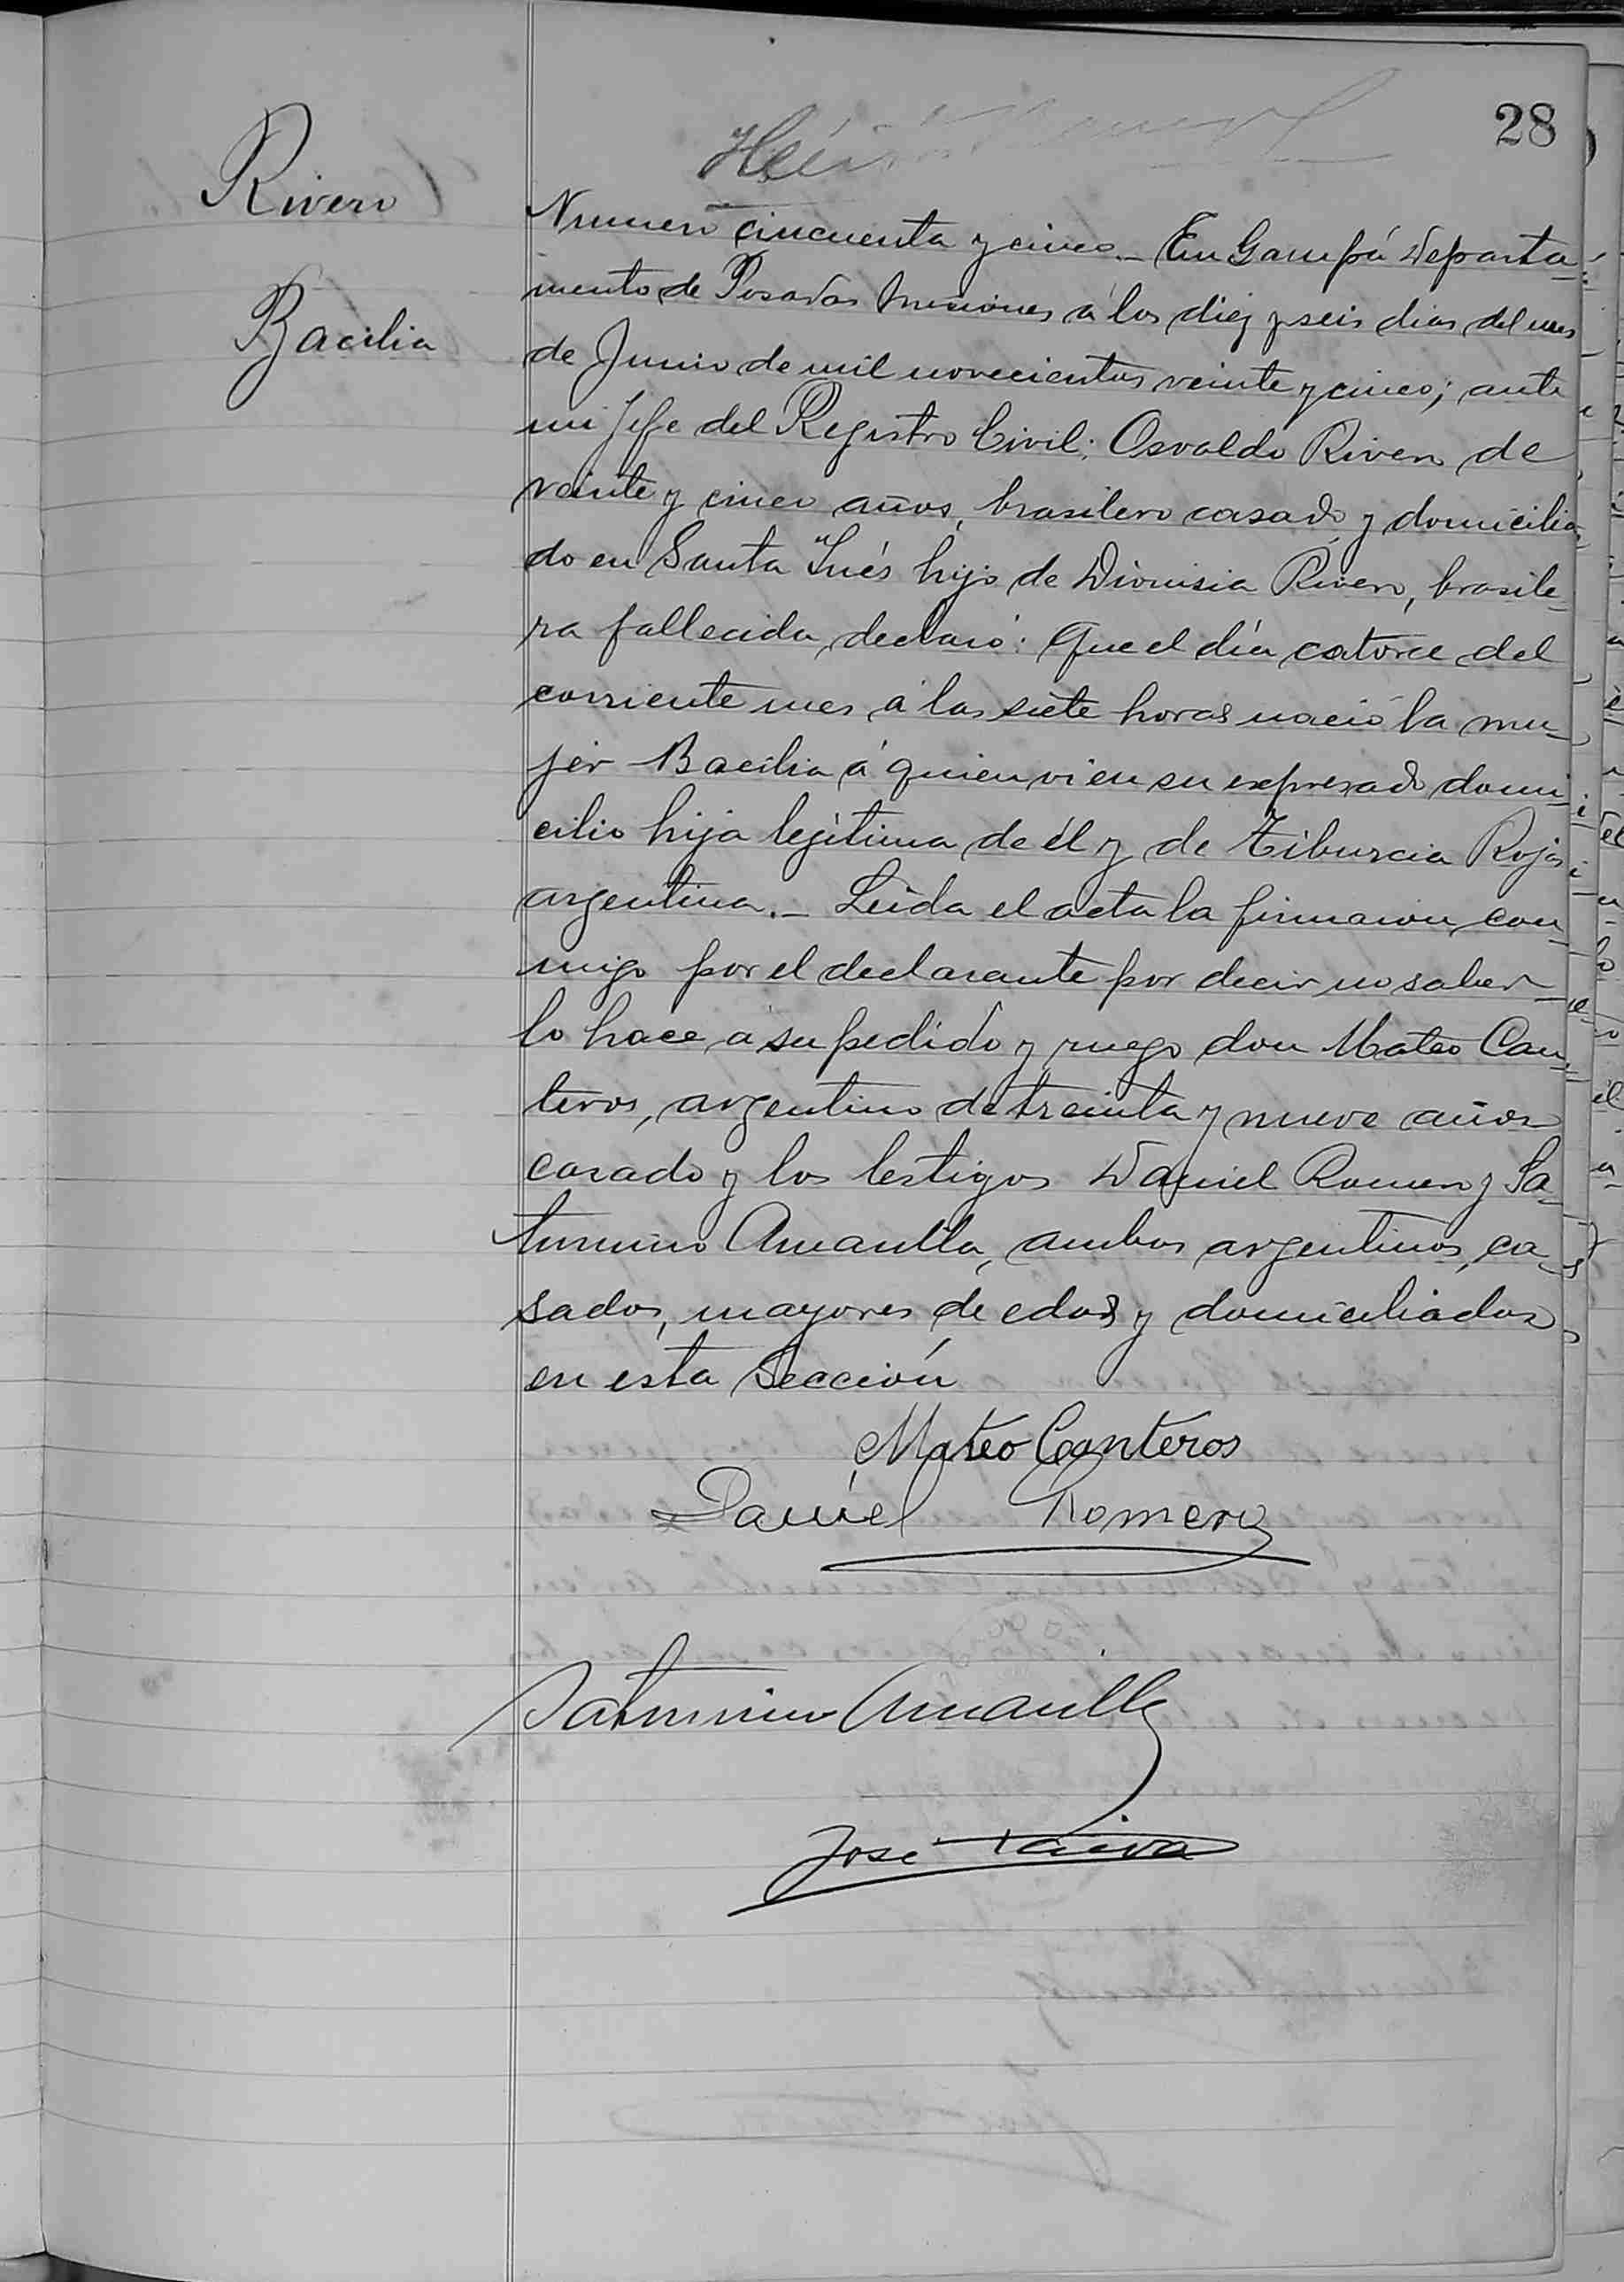 28
Rivero
Bacilia
Numero cincuenta y cinco._ En Garupá Departa-
mento de Posadas Misiones á los diez y seis dias del mes
de Junio de mil novecientos veinte y cinco; ante
mi Jefe del Registro Civil: Osvaldo Rivero de
veinte y cinco años, brasilero casado y domicilia-
do en Santa Inés hijo de Dionisia Rivero, brasile-
ra fallecida, declaró: Que el día catorce del
corriente mes á las siete horas nació la mu-
jer Bacilia á quien vi en su expresado domi-
cilio hija legítima de él y de Tiburcia Rojas
argentina._ Leída el acta la firmaron con-
migo por el declarante por decir no saber
lo hace a su pedido y ruego don Mateo Can-
teros, argentino de treinta y nueve años
casado y los testigos Daniel Romero y Sa-
turnino Amarilla, ambos argentinos, ca-
sados, mayores de edad y domiciliados
en esta Sección
Mateo Canteros
Daniel Romero
Saturnino Amarilla
José Paiva